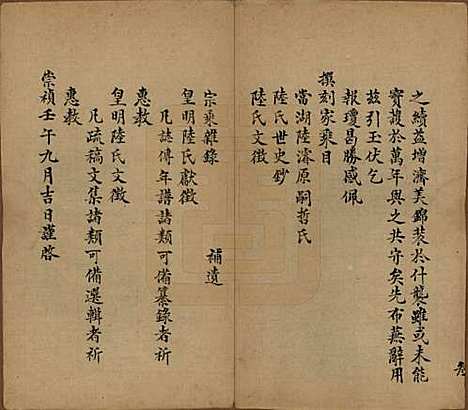 之績益增濟美鄒裝於什襲雖或未能
寶護於萬年與之共守矣先布蕪辭用
茲引玉伏乞
報瓊曷勝感佩
撰刻家乘目
當湖陸濬原嗣哲氏
陸氏世史鈔
陸氏文徵
宗乘雜錄
補遺
皇明陸氏獻徵
凡誌傳年譜諸類可備纂錄者祈
惠教
皇明陸氏文徵
凡疏稿文集諸類可備選輯者祈
惠教
崇禎壬午九月吉日謹啓